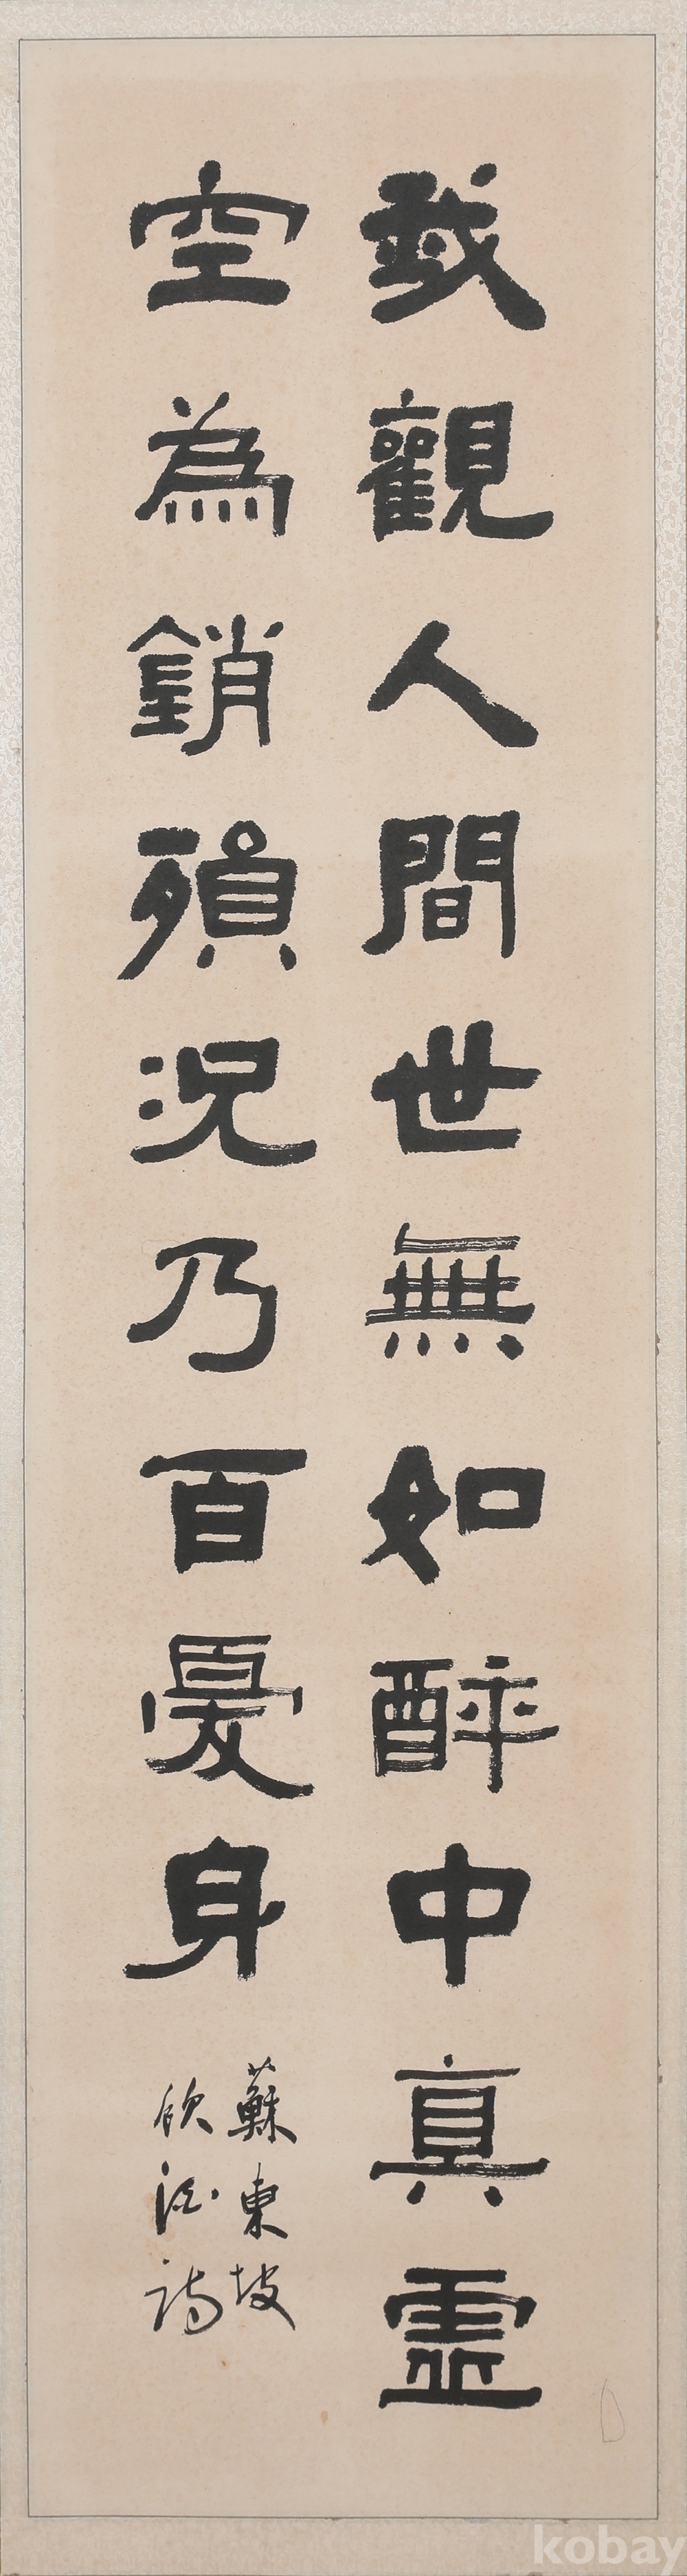 我觀人間世無如醉中真靈
空為銷殞況乃百憂身
蘇東坡
飲酒詩
kobay